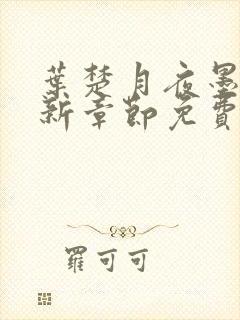 葉楚月夜墨
新章節免費
羅可可